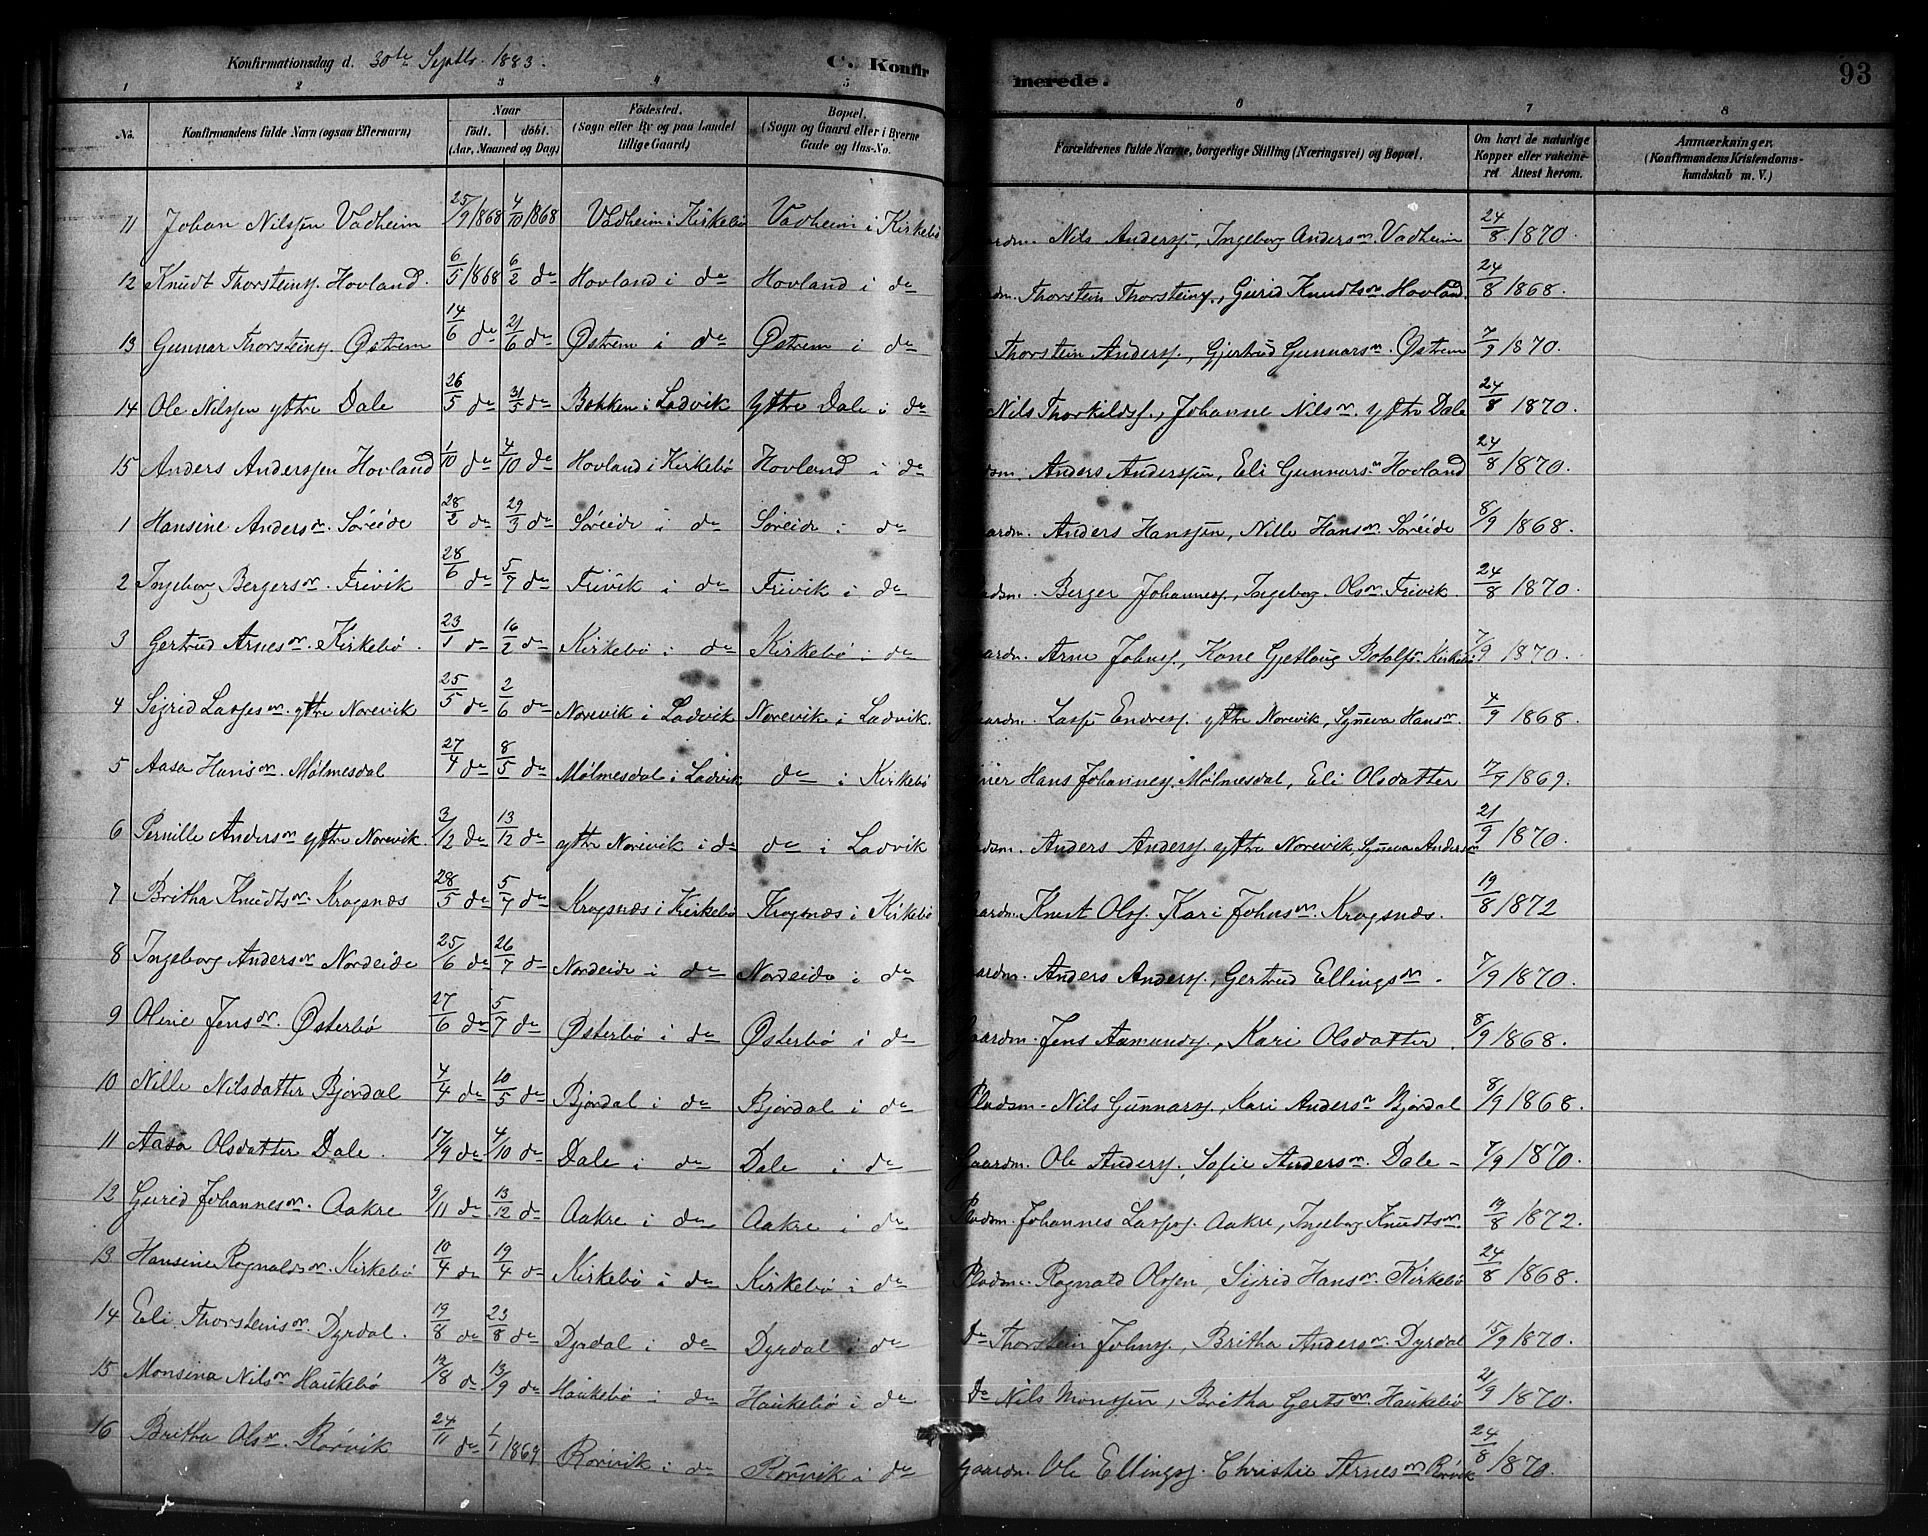 Konfirmationsdag d. 30te Septbr. 1883. C. Konfirmerede. 93
1 2 3 4 5 6 7 8
No. Konfirmandens fulde Navn (ogsaa Efternavn) Naar født. døbt. (Aar, Maaned og Dag) Födested. (Sogn eller By og paa Landet tillige Gaard) Bopæl. (Sogn og Gaard eller i Byerne Gade og Hus-No. Forældrenes fulde Navne, borgerlige Stilling (Næringsvei) og Bopæl. Om havt de naturlige Kopper eller vakcineret Attest herom. Anmærkninger. (Konfirmandens Kristendomskundskab m. V.)
11 Johan Nilssen Vadheim 25/9 1868 4/10 1868 Vadheim i Kirkebø Vadheim i Kirkebø Nils Anders., Ingeborg Andersdr. Vadheim 24/8 1870.
12 Knudt Thorsteins. Hovland. 6/5 1868 6/2 do Hovland i do Hovland i do Thorstein Thorsteins., Gurid Knudtsdr. Hovland 24/8 1868.
13 Gunnar Thorsteins. Østrem 14/6 do 21/6 do Østrem i do Østrem i do Thorstein Anders., Gjertrud Gunnarsdr. Østrem 7/9 1870.
14 Ole Nilssen ytre Dale 26/5 do 31/5 do Bakken i Ladvik ytre Dale i do Nils Thorkilds., Johanne Nilsdr. ytre Dale 24/8 1870.
15 Anders Anderssen Hovland 1/10 do 4/10 do Hovland i Kirkebø Hovland i do Anders Anderssen, Eli Gunnarsdr. Hovland 24/8 1870.
1 Hansine Andersdr. Søreide 28/2 do 29/3 do Søreide i do Søreide i do Anders Hanssen, Nille Hansdr. Søreide 8/9 1868.
2 Ingeborg Bergersdr. Frivik 28/6 do 5/7 do Frivik i do Frivik i do Berger Johannes., Ingeborg Olsdr. Frivik. 24/8 1870.
3 Gertrud Arnesdr. Kirkebø. 23/1 do 16/2 do Kirkebø i do Kirkebø i do Arne Johns., Kone Gjetlaug Botolfs. Kirkebø 7/9 1870.
4 Sigrid Lassesdr. ytre Norevik 25/5 do 2/6 do Norevik i Ladvik Norevik i Ladvik Gaardm. Lasse Endres. ytre Norevik, Synneva Hansdr. 4/9 1868.
5 Aasa Hansdr. Mølmesdal 27/4 do 8/5 do Mølmesdal i Ladvik do i Kirkebø Hans Johannes. Mølmesdal, Eli Olsdatter 7/9 1869.
6 Pernille Andersdr. ytre Norevik. 3/12 do 13/12 do ytre Norevik i do do i Ladvik Anders Anders. ytre Norevik, Synneva Andersdr. 21/9 1870.
7 Britha Knudtsdr. Kragsnæs 28/5 do 5/7 do Kragsnæs i Kirkebø Kragsnæs i Kirkebø Knut Ols. Kari Johnsdr. Kragsnæs. 19/8 1872
8 Ingeborg Andersdr. Nordeide 25/6 do 26/7 do Nordeide i do Nordeide i do Anders Anders., Gertrud Ellingsdr. 7/9 1870.
9 Oline Jensdr. Østerbø 27/6 do 5/7 do Østerbø i do Østerbø i do Gaardm. Jens Aamunds., Kari Olsdatter 8/9 1868.
10 Nille Nilsdatter Bjordal 7/4 do 10/5 do Bjordal i do Bjordal i do Pladsm. Nils Gunnars., Kari Andersdr. Bjordal 8/9 1868.
11 Aasa Olsdatter Dale. 17/9 do 4/10 do Dale i do Dale i do Gaardm. Ole Anders. Sofie Andersdr. Dale 7/9 1870.
12 Gurid Johannesdr. Aakre 9/11 do 13/12 do Aakre i do Aakre i do Pladsm. Johannes Lasses. Aakre, Ingeborg Knudtsdr. 19/8 1872.
13 Hansine Ragnaldsdr. Kirkebø 10/4 do 19/4 do Kirkebø i do Kirkebø i do Pladsm. Ragnald Olssen, Sigrid Hansdr. Kirkebø 24/8 1868.
14 Eli Thorsteinsdr. Dyrdal. 19/8 do 23/8 do Dyrdal i do Dyrdal i do Do Thorstein Johns., Britha Andersdr. Dyrdal 15/9 1870.
15 Monsina Nilsdr. Haukebø 12/8 do 13/9 do Haukebø i do Haukebø i do Do Nils Monssen, Britha Gertsdr. Haukebø 21/9 1870.
16 Britha Olsdr. Rørvik 24/11 do 1/1 1869 Rørvik i do Rørvik i do Gaardm. Ole Ellings. Christie Arnesdr. Rørvik 24/8 1870.